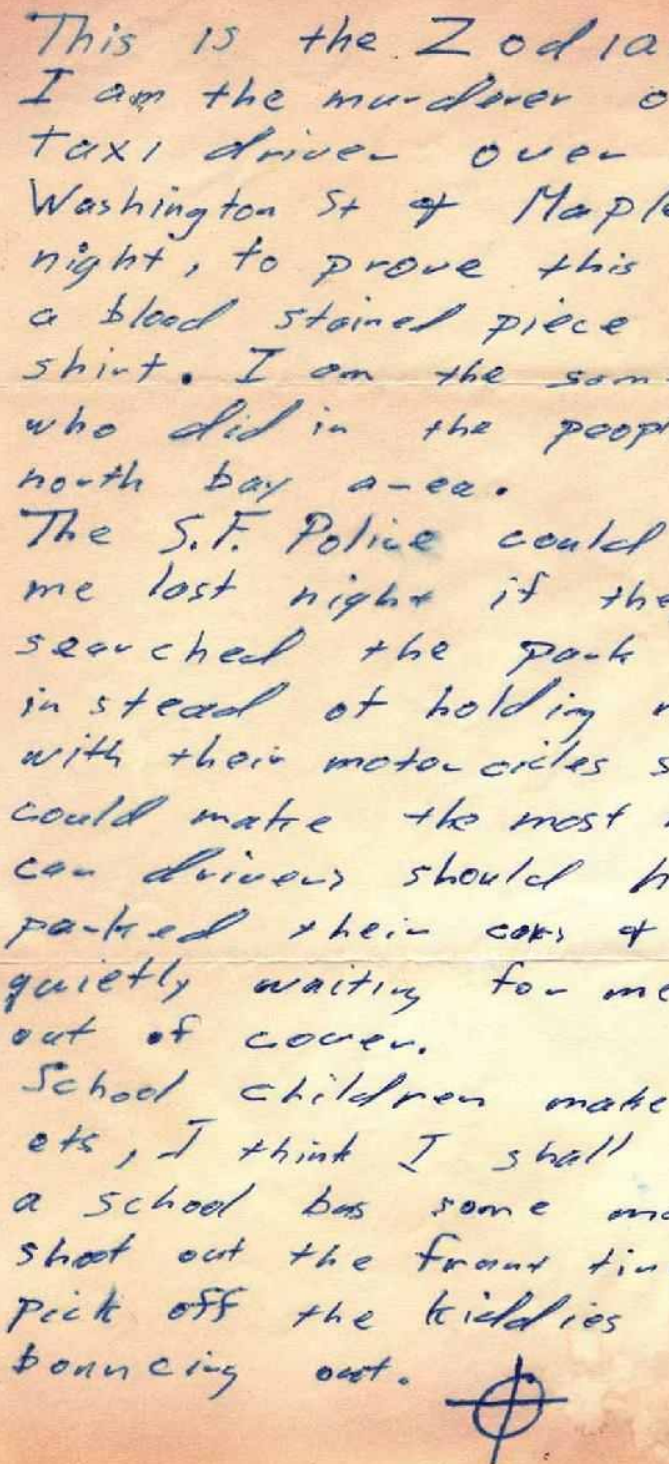 This is the Zodia
I am the murderer o
taxi driver over
Washington St & Maple
night, to prove this
a blood stained piece
shirt. I am the sam
who did in the peop
north bay area.
The S.F. Police could
me last night if the
searched the park
in stead of holding r
with their motorcicles s
could make the most
car drivers should h
parked their cars &
quietly waiting for me
out of cover.
School children make
ets, I think I shall
a school bus some mo
shoot out the front tir
pick off the kiddies
bouncing out.